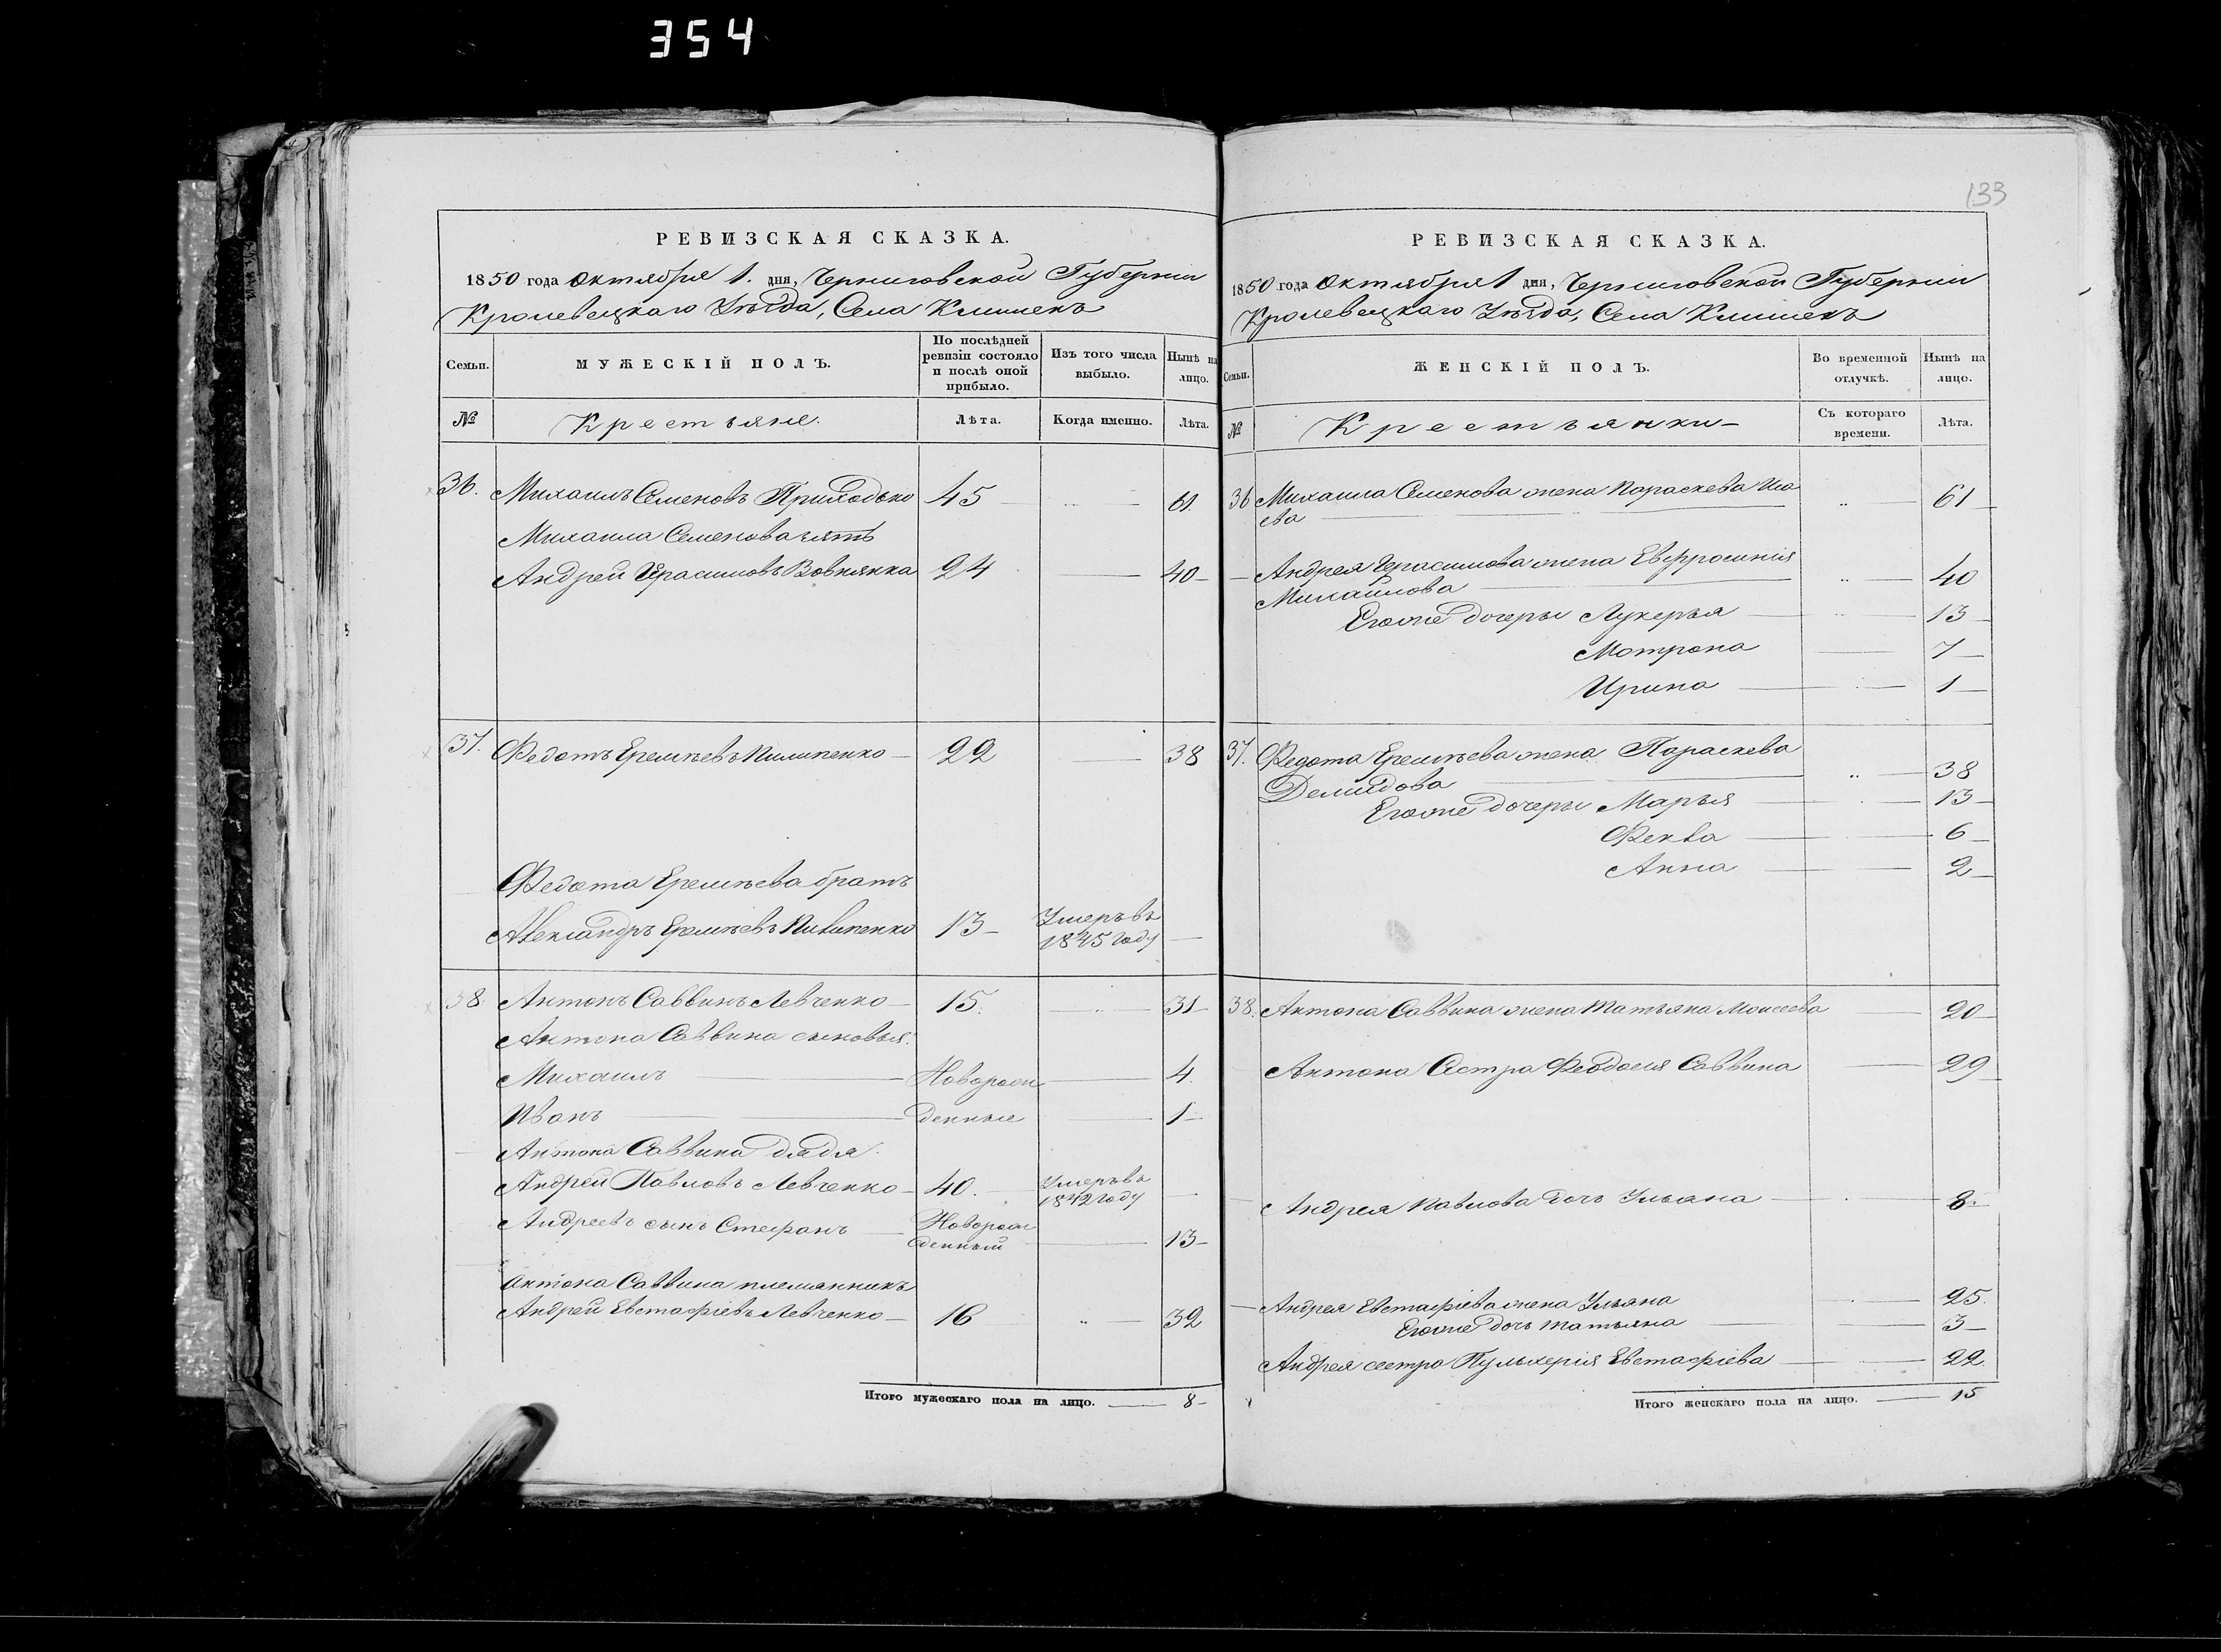 354
РЕВИЗСКАЯ СКАЗКА.
1850 года Октября 1. дня, Черниговской Губерніи
Кролевецкаго Уѣзда, Села Клишекъ
Семьи.
МУЖЕСКІЙ ПОЛЪ.
По послѣдней ревизіи состояло и послѣ оной прибыло.
Изъ того числа выбыло.
Нынѣ на лицо.
№
Крестьяне.
Лѣта.
Когда именно.
Лѣта.
36. Михаилъ Семеновъ Приходько 45 61.
Михаила Семенова зять
Андрей Герасимовъ Вовнянка 24 40
37. Федотъ Еремѣевъ Пилипенко 22 38
Федота Еремѣева братъ
Александръ Еремѣевъ Пилипенко 13 Умеръ въ
1845 году
38 Антонъ Саввинъ Левченко 15. 31
Антона Саввина сыновья:
Михаилъ Новорож 4.
Иванъ денные 1
Антона Саввина дядя.
Андрей Павловъ Левченко 40. Умеръ въ
1842 году
Андреевъ сынъ Стефанъ Новорож
денный 13
Антона Саввина племянникъ
Андрей Евстафіевъ Левченко 16 32
Итого мужескаго пола на лицо. 8
133
РЕВИЗСКАЯ СКАЗКА.
1850 года Октября 1 дня, Черниговской Губерніи
Кролевецкаго Уѣзда, Села Клишекъ
Семьи.
ЖЕНСКІЙ ПОЛЪ.
Во временной отлучкѣ.
Нынѣ на лицо.
№
Крестьянки
Съ котораго времени.
Лѣта.
36 Михаила Семенова жена Параскева 61
Андрея Герасимова жена Евфросинія
Михайлова 40
Егоже дочеры Лукерья 13
Мотрона 7
Ирина 1
37. Федота Еремѣева жена Параскева
Демидова 38
Егоже дочеры Марья 13
Фекла 6
Анна 2
38. Антона Саввина жена Татьяна Моисеева 20
Антона Сестра Феодосія Саввина 29
Андрея Павлова дочь Ульяна 8.
Андрея Евстафіева жена Ульяна 25.
Егоже дочь Татьяна 3
Андрея сестра Пульхерія Евстафіева 22.
Итого женскаго пола на лицо. 15